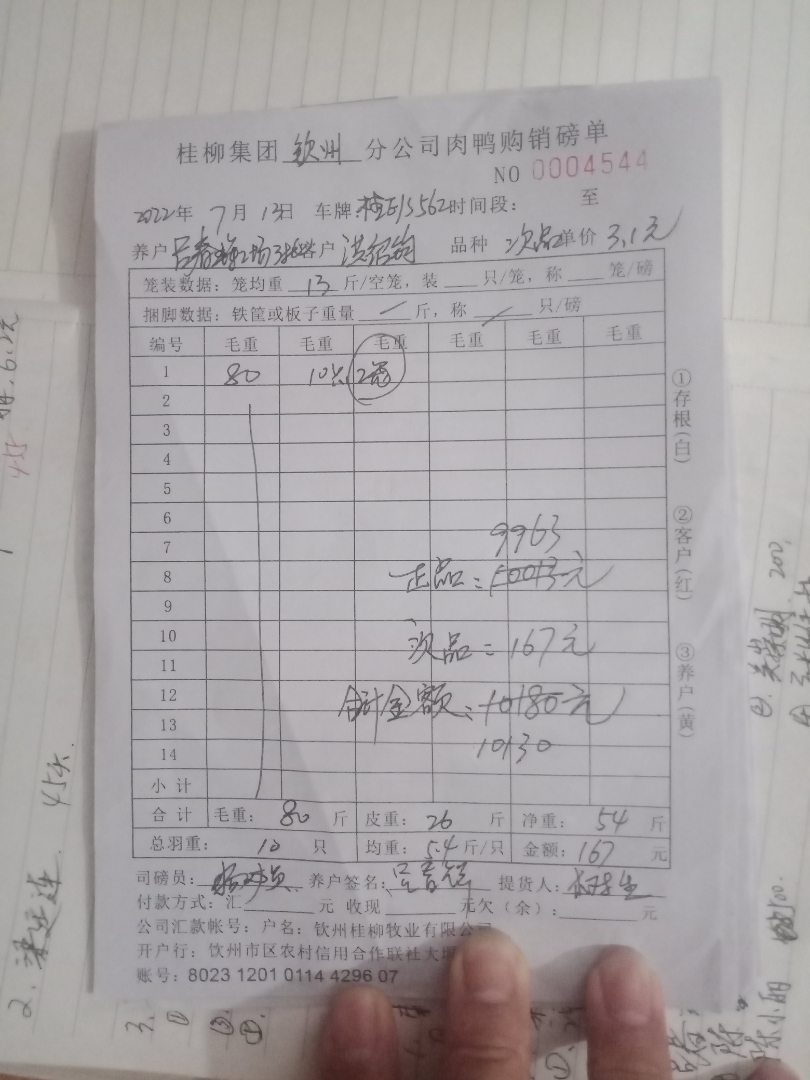 桂柳集团 钦州 分公司肉鸭购销磅单
NO 0004544
2022年 7月 13日 车牌: 时间段: 至
养户 客户 洪绍钧 品种 次品 单价 3.1元
笼装数据: 笼均重 13 斤/空笼, 装 只/笼, 称 笼/磅
捆脚数据: 铁筐或板子重量 斤, 称 只/磅
编号 毛重 毛重 毛重 毛重 毛重 毛重
1 80 10只 2笼
2
3
4
5
6
7 9963
8 正品: 10013元
9
10 次品 = 167元
11
12 合计金额: 10180元
13
14 10130
小计
合计 毛重: 80 斤 皮重: 26 斤 净重: 54 斤
总羽重: 10 只 均重: 5.4 斤/只 金额: 167 元
司磅员: 养户签名: 提货人:
付款方式: 汇 元 收现 元欠(余): 元
公司汇款帐号: 户名: 钦州桂柳牧业有限公司
开户行: 钦州市区农村信用合作联社大
账号: 8023 1201 0114 4296 07
①存根(白)
②客户(红)
③养户(黄)
455
45只.
2.
3. ①
200.